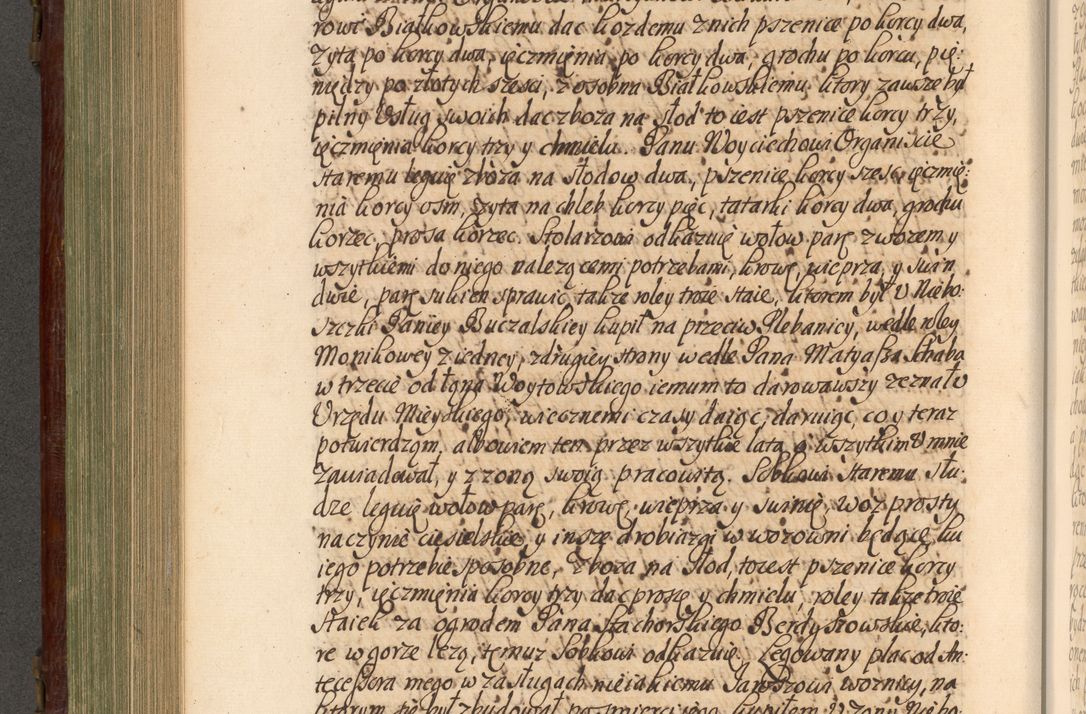 rowi Białkowskiemu dac kozdemu z nich pszenice po korcy dwa,
zyta po korcy dwa, ięczmienia po korcy dwa, grochu po korcu, pię:
niędzy po złotych szesci, z osobna Białkowskiemu ktory zawsze był
pilny Usług swoich dac zboza na słod to iest pszenice korcy trzy,
ięczmienia korcy trzy y chmielu. Panu Woyciechowi Organiscie
staremu leguię zboza na słodow dwa, pszenice korcy szesc, ięczmię:
nia korcy osm, zyta na chleb korcy pięc, tatarki korcy dwa, grochu
korzec, prosa korzec. Stolarzowi odkazuię wołow parę z wozem y
wszytkiemi do niego nalezącemi potrzebami, krowę, wieprza, y swin
dwie, parę sukien sprawic, takze roley troie staie, ktorem był U Niebo:
szczki Paniey Buczalskiey kupił na przeciw Plebanicy, wedle roley
Monikowey z iedney, z drugiey strony wedle Pana Matyasza Schaba
w trzecie od łąnu Woytowskiego iemum to darowawszy zeznał U
Urzędu Mieyskiego, wiecznemi czasy daiąc, daruiąc, co y teraz
potwierdząm, albowiem ten przez wszytkie lata o wszytkim U mnie
zawiadował, y z zoną swoią pracowitą. Sobkowi staremu słu:
dze leguię wołow parę, krowę, wieprza y swinię, woz prosty
naczynie ciesielskie y insze drobiazgi w wozowni będące, ku
iego potrzebie sposobne, zboza na słod, to iest pszenice korcy
trzy, ięczmienia korcy trzy dac proszę y chmielu, roley takze troie
staiek za ogrodem Pana Stachorskiego Berdyszowskie, kto:
re w gorze lezą, temuz Sobkowi odkazuię. Legowany plac od An:
tecessora mego w zasługach nieiakiemu Jandrzowi woznicy, na
ktorym się był zbudował, po smierci iego kupiłem U zony Niebo